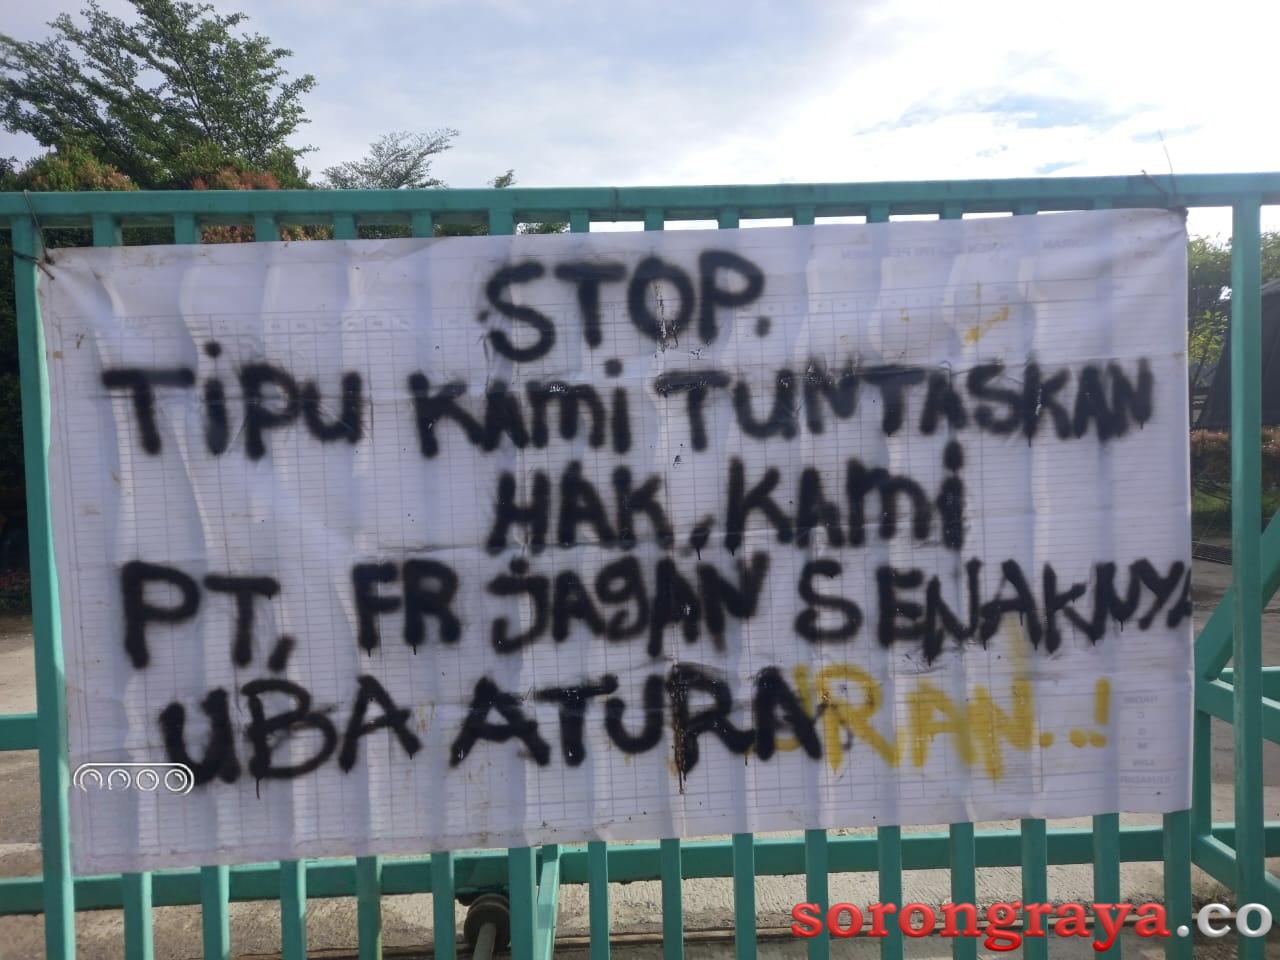 STOP.
TiPU KAmi TUNTASKAN
HAK, KAmi
PT, FR jAgAN SENAKNYA
UBA ATURA URAN..!
sorongraya.co